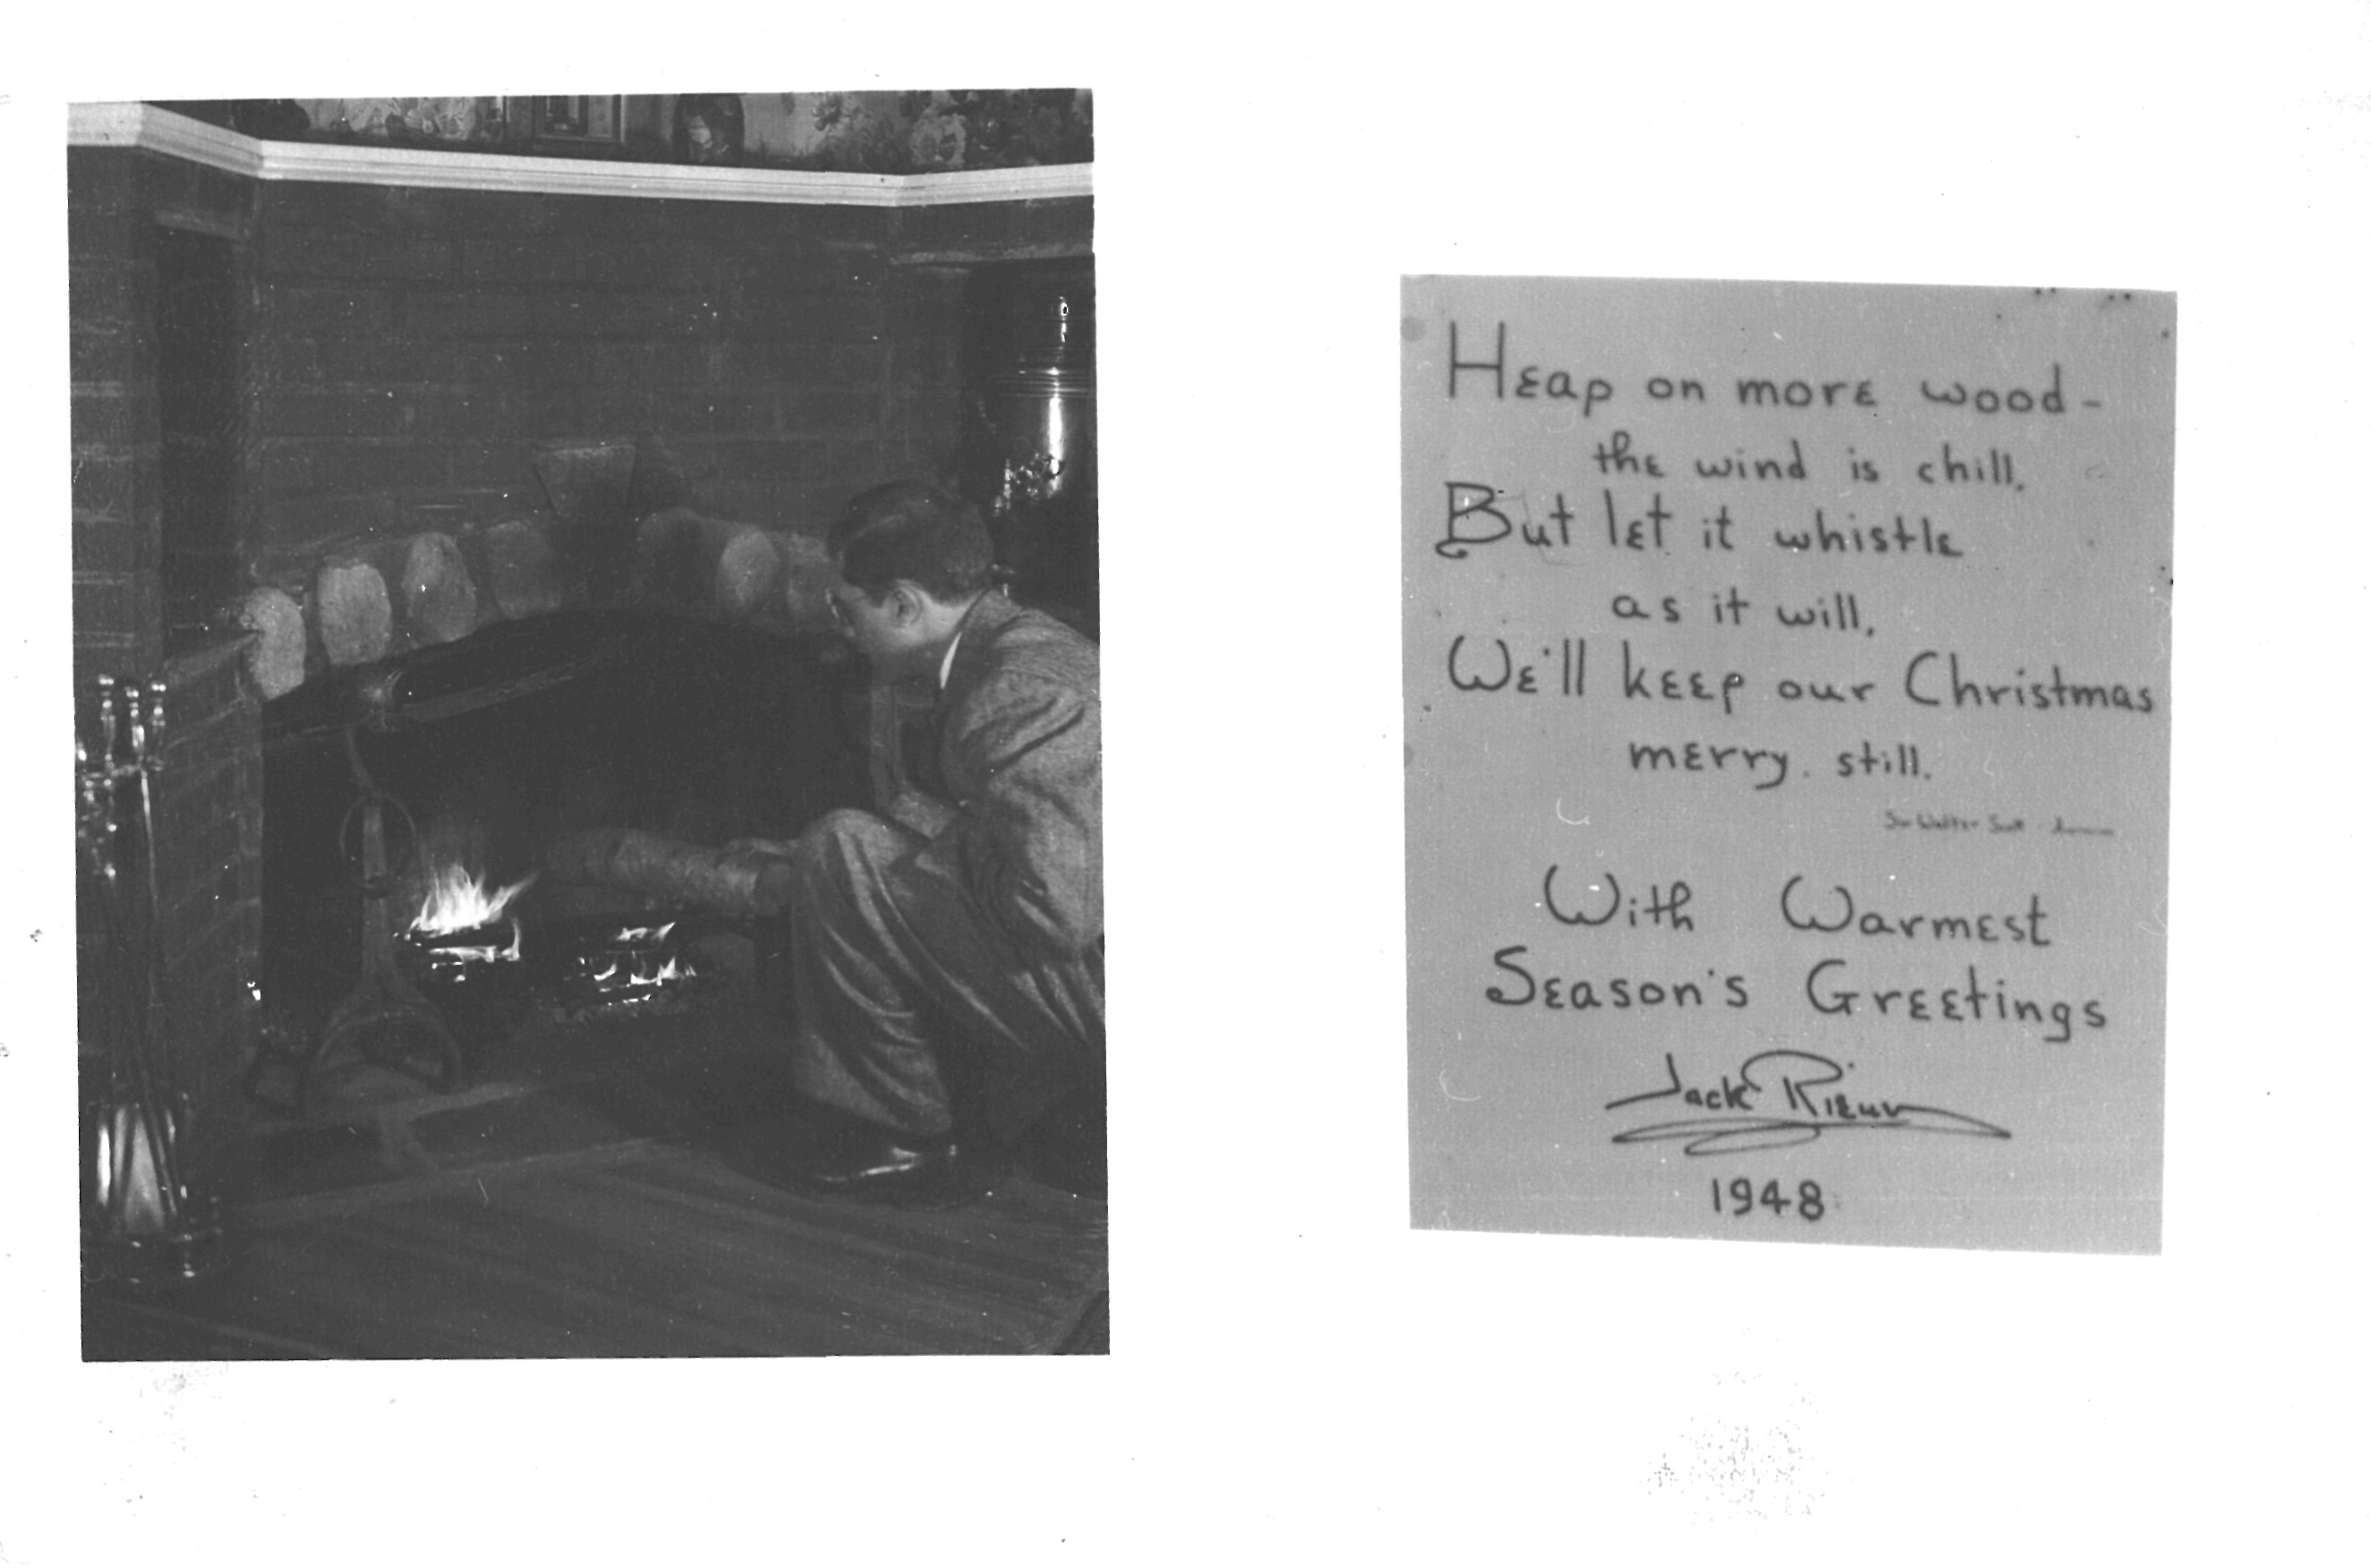 Heap on more wood -
the wind is chill.
But let it whistle
as it will,
We'll keep our Christmas
merry still.
Sir Walter Scott
With Warmest
Season's Greetings
Jack
1948